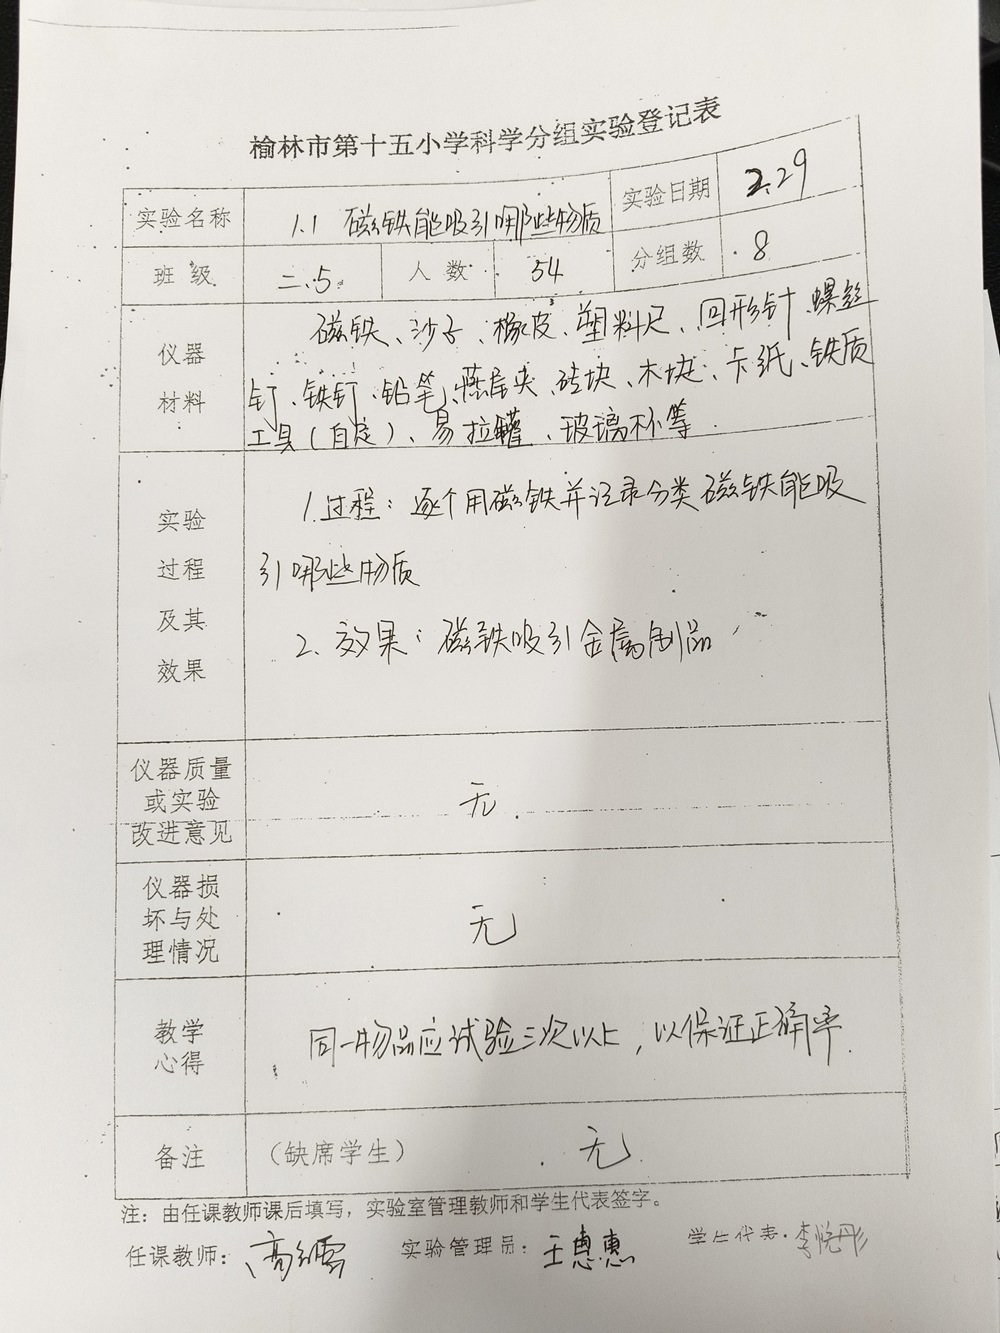 榆林市第十五小学科学分组实验登记表
实验名称 1.1 磁铁能吸引哪些物质 实验日期 2.29
班级 二.5 人数 54 分组数 8
仪器材料
磁铁、沙子、橡皮、塑料尺、回形针、螺丝
钉、铁钉、铅笔、燕尾夹、砖块、木块、卡纸、铁质
工具（自定）、易拉罐、玻璃杯等
实验
过程
及其
效果
1.过程：逐个用磁铁并记录分类磁铁能吸
引哪些物质
2、效果：磁铁吸引金属制品
仪器质量
或实验
改进意见
无.
仪器损
坏与处
理情况
无
教学
心得
同一物品应试验三次以上，以保证正确率.
备注 （缺席学生） 无
注：由任课教师课后填写，实验室管理教师和学生代表签字。
任课教师： 高 实验管理员：王惠惠 学生代表：李悦彤